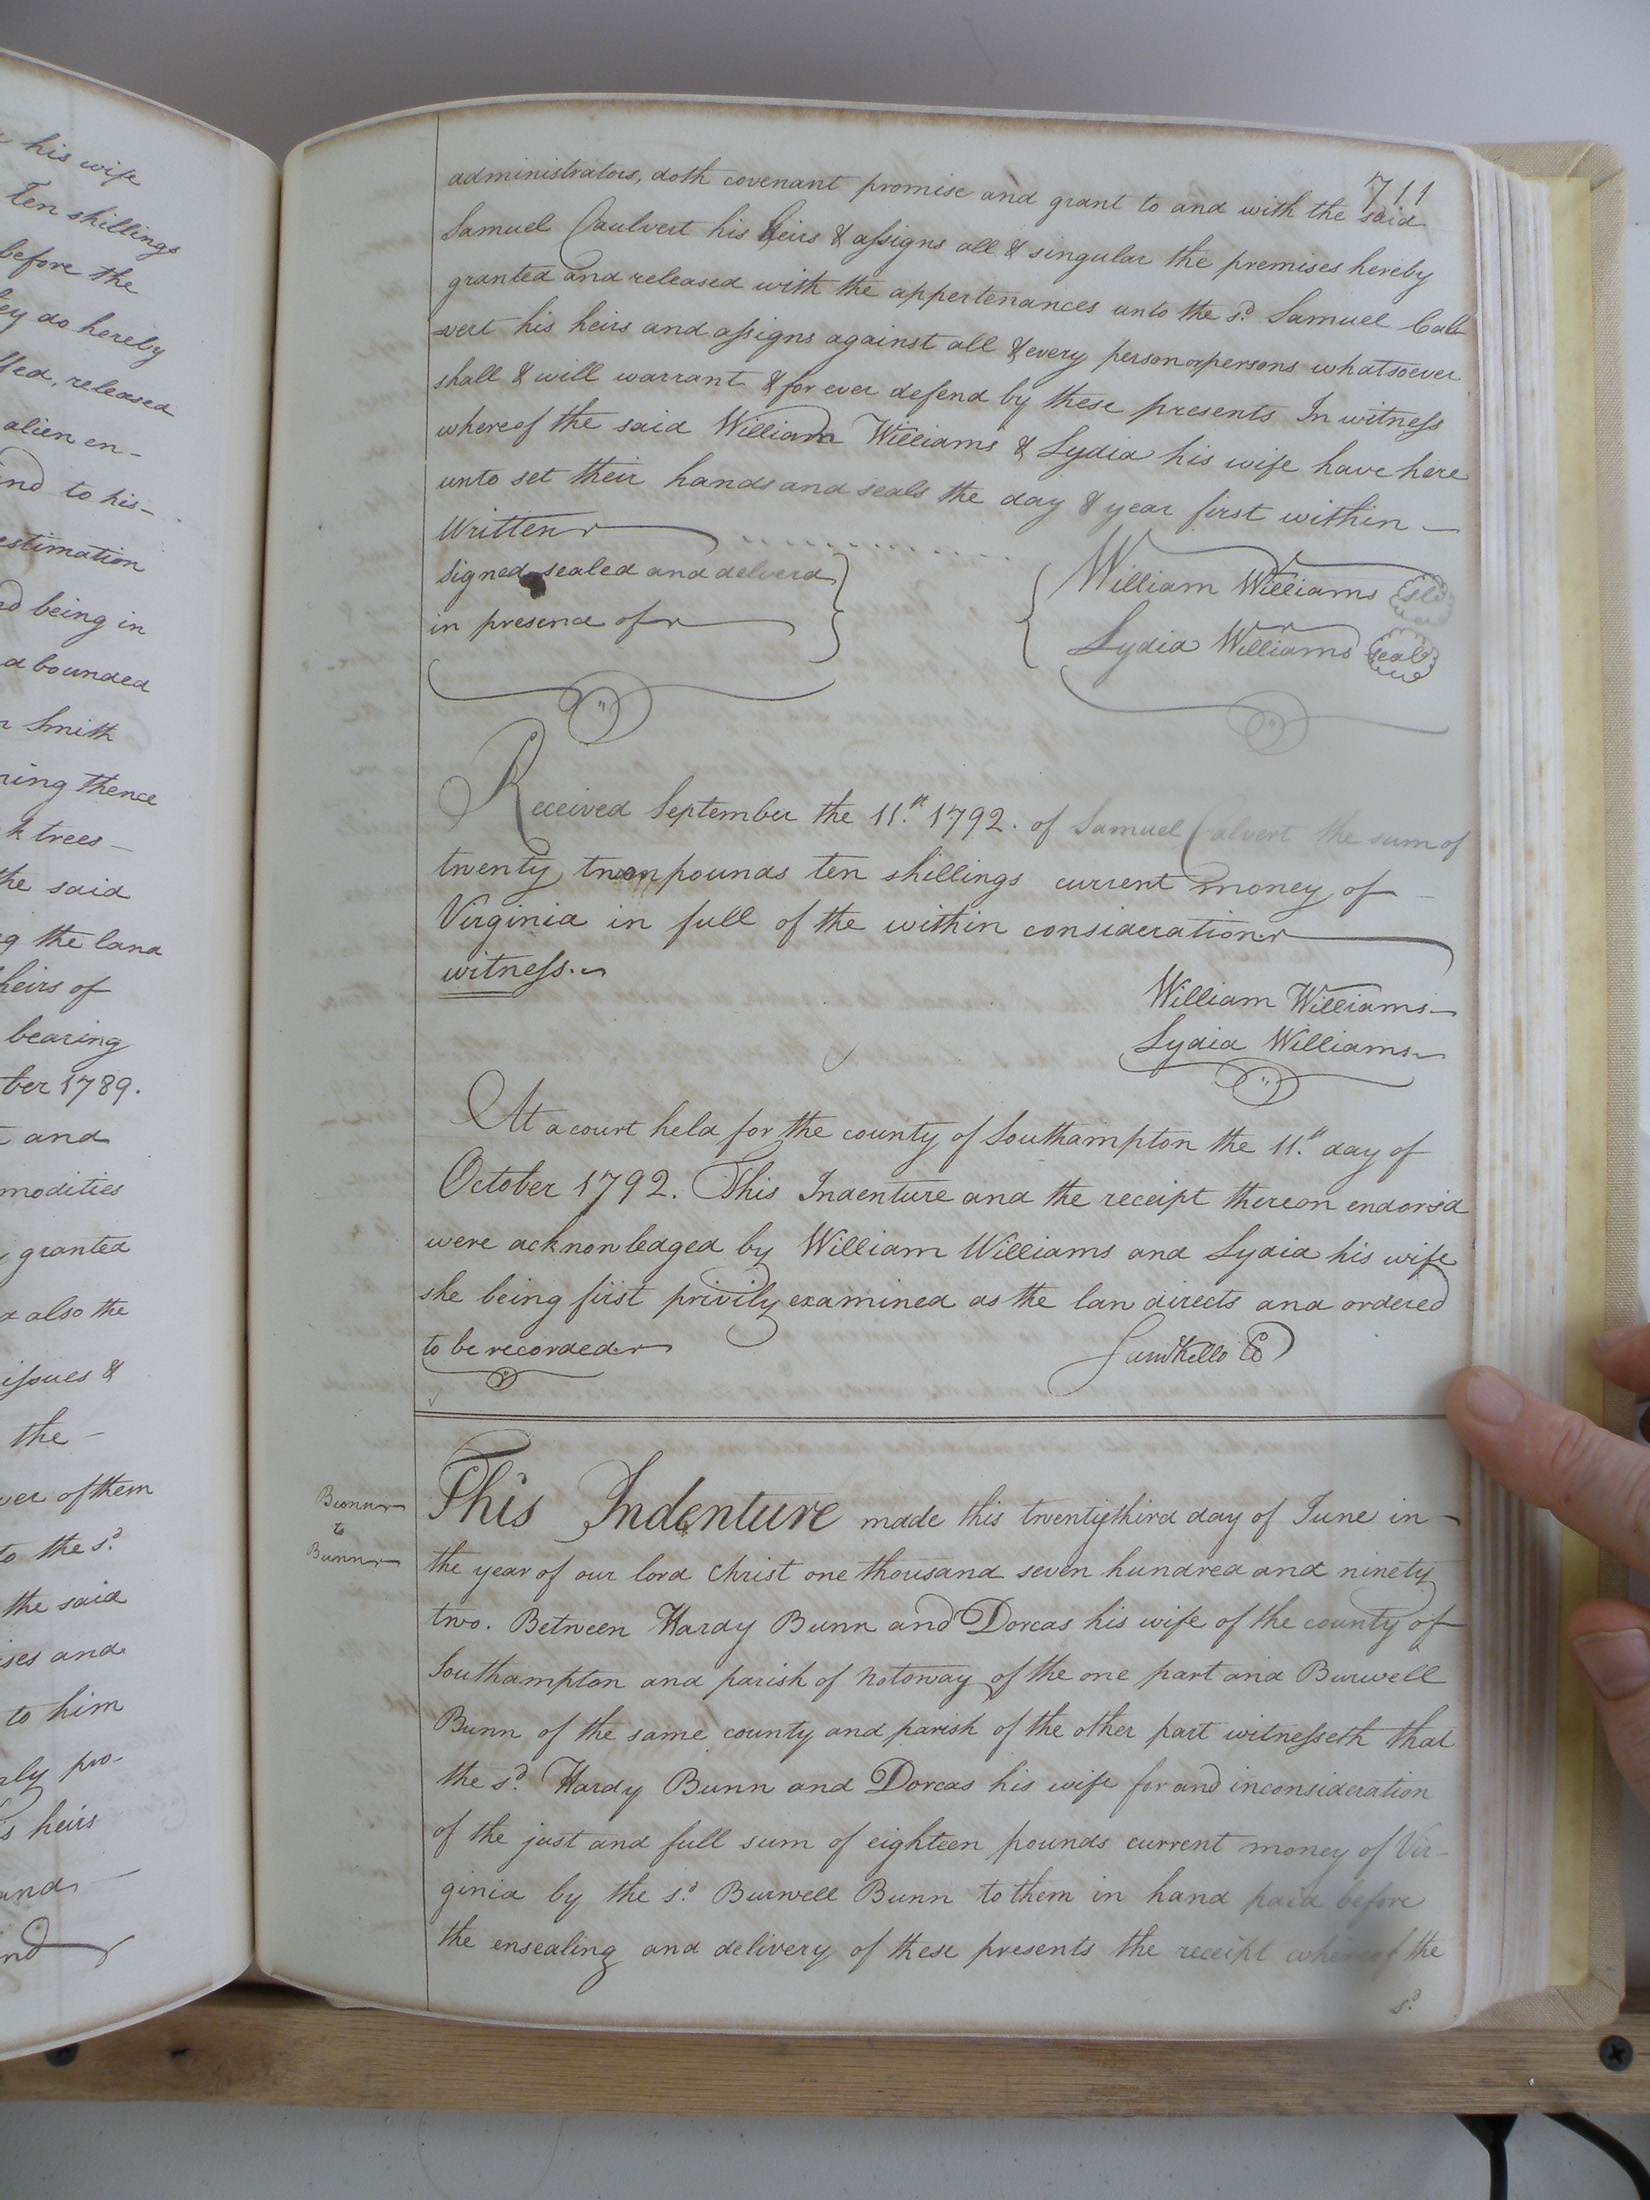 his wife
Ten shillings
before the
ey do hereby
ssed, released
alien en-
ind to his-
estimation
d being in
d bounded
Smith
ring thence
k trees-
the said
g the land
heirs of
bearing
ber 1789.
and
modities
granted
also the
issues &
the-
ver of them
to the sd.
the said
ses and
to him
rly pro-
s heirs
and
nd
711
administrators, doth covenant promise and grant to and with the said
Samuel Caulvert his heirs & assigns all & singular the premises hereby
granted and released with the appertenances unto the sd. Samuel Cal-
vert his heirs and assigns against all & every person or persons whatsoever
shall & will warrant & for ever defend by these presents In witness
whereof the said William Williams & Lydia his wife have here
unto set their hands and seals the day & year first within-
written
signed sealed and deliverd
in presence of
William Williams seal
Lydia Williams seal
Received September the 11th 1792. of Samuel Calvert the sum of
twenty two pounds ten shillings current money of
Virginia in full of the within consideration
witness.
William Williams
Lydia Williams
At a court held for the county of Southampton the 11th day of
October 1792. This Indenture and the receipt thereon endorsd
were acknowledged by William Williams and Lydia his wife
she being first privily examined as the law directs and ordered
to be recorded
Saml Kello CC
Bunn
to
Bunn
This Indenture made this twentythird day of June in
the year of our lord Christ one thousand seven hundred and ninety
two. Between Hardy Bunn and Dorcas his wife of the county of
Southampton and parish of Notoway of the one part and Burwell
Bunn of the same county and parish of the other part witnesseth that
the sd. Hardy Bunn and Dorcas his wife for and inconsideration
of the just and full sum of eighteen pounds current money of Vir-
ginia by the sd. Burwell Bunn to them in hand paid before
the ensealing and delivery of these presents the receipt whereof the
sd.